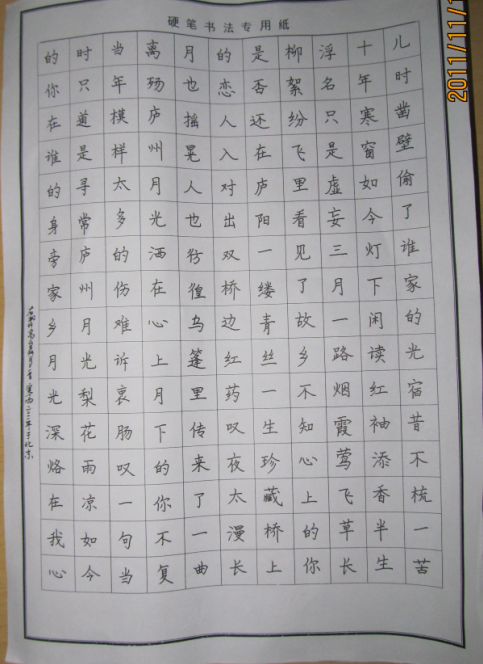 硬笔书法专用纸
儿时凿壁偷了谁家的光宿昔不梳一苦
十年寒窗如今灯下闲读红袖添香半生
浮名只是虚妄三月一路烟霞莺飞草长
柳絮纷飞里看见了故乡不知心上的你
是否还在庐阳一缕青丝一生珍藏桥上
的恋人入对出双桥边红药叹夜太漫长
月也摇晃人也彷徨乌篷里传来了一曲
离殇庐州月光洒在心上月下的你不复
当年模样太多的伤难诉衷肠叹一句当
时只道是寻常庐州月光梨花雨凉如今
的你在谁的身旁家乡月光深烙在我心
2011/11/1